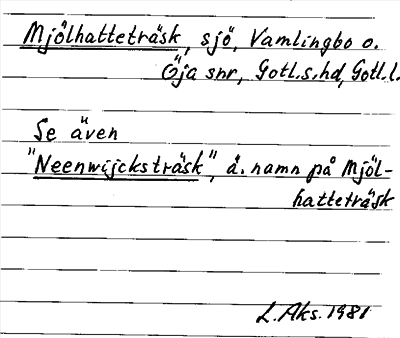 Mjölhatteträsk, sjö, Vamlingbo o.
Öja snr, Gotl.s.hd, Gotl.l.
Se även
"Neenwijcksträsk", ä. namn på Mjöl-
hatteträsk
L. Aks. 1981